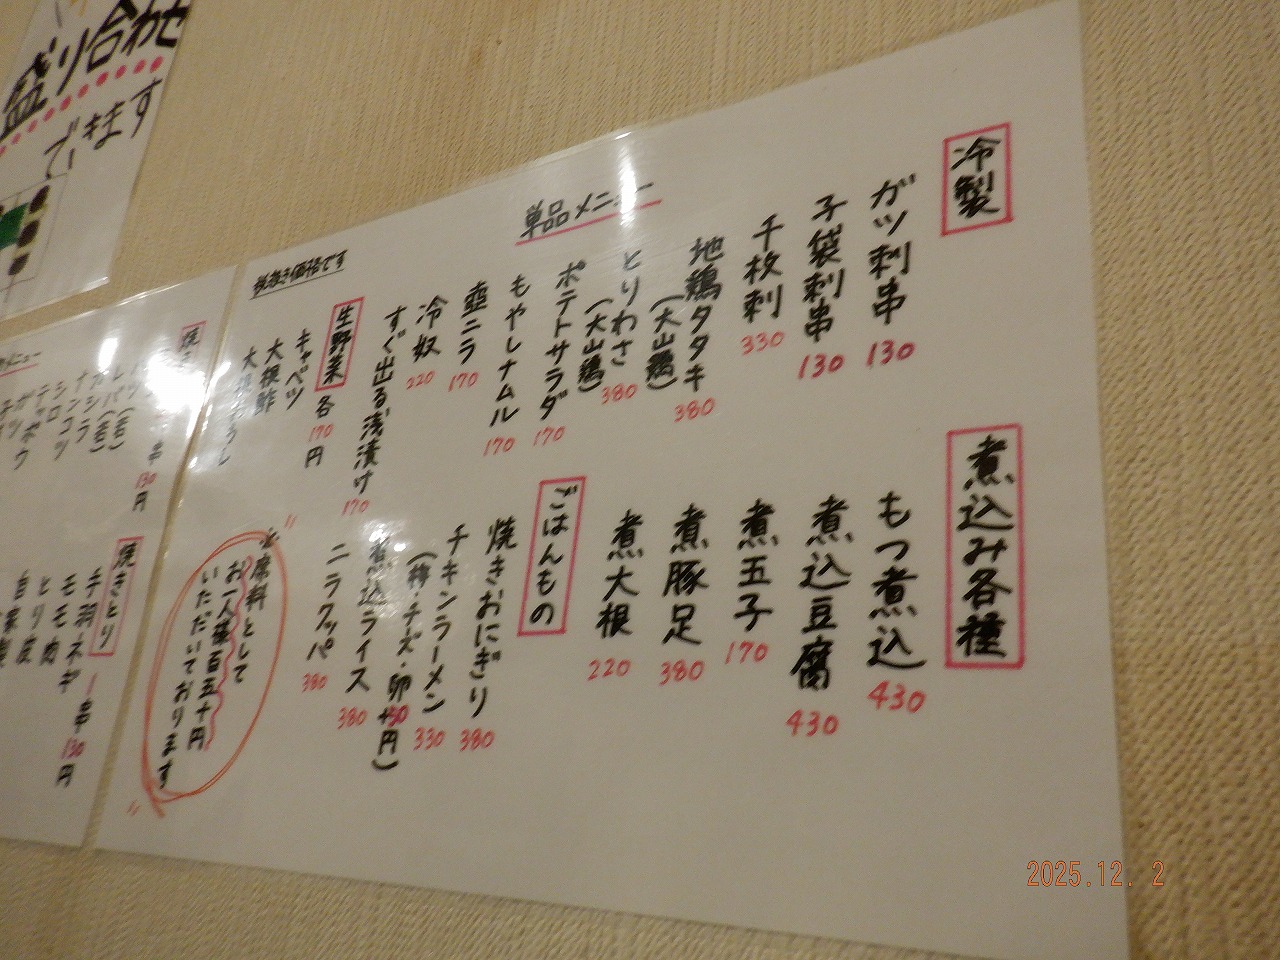 冷製
ガツ刺串 130
子袋刺串 130
千枚刺 330
地鶏タタキ 380
(大山鶏)
とりわさ 380
(大山鶏)
ポテトサラダ 170
もやしナムル 170
壺ニラ 170
冷奴 220
すぐ出る浅漬け 170
生野菜 各170円
キャベツ
大根酢
単品メニュー
税抜き価格です
煮込み各種
もつ煮込 430
煮込豆腐 430
煮玉子 170
煮豚足 380
煮大根 220
ごはんもの
焼きおにぎり 380
チキンラーメン 330
煮込ライス 380
ニラクッパ 380
※席料として
お一人様百五十円
いただいております
焼きとり 一串130円
手羽ネギ
モモ肉
とり皮
自家製
レバ(若)
カシラ
ナンコツ
シロ
テッポウ
ガツ
盛り合わせ
できます
2025.12. 2